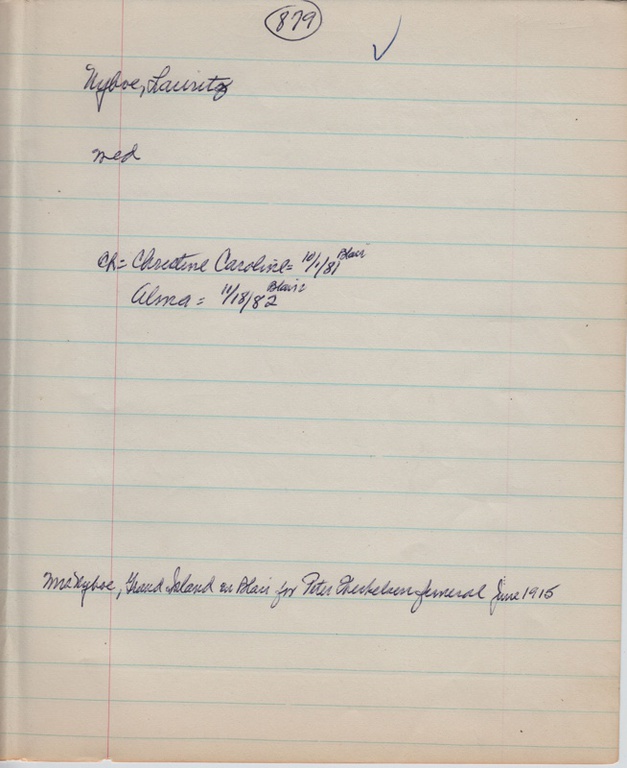 879
Nyboe, Lauritz
med
Ch = Christine Caroline = 10/1/81 Blair
Alma = 11/18/82 Blair
Mrs Nyboe, Grand Island in Blair for Peter funeral June 1915